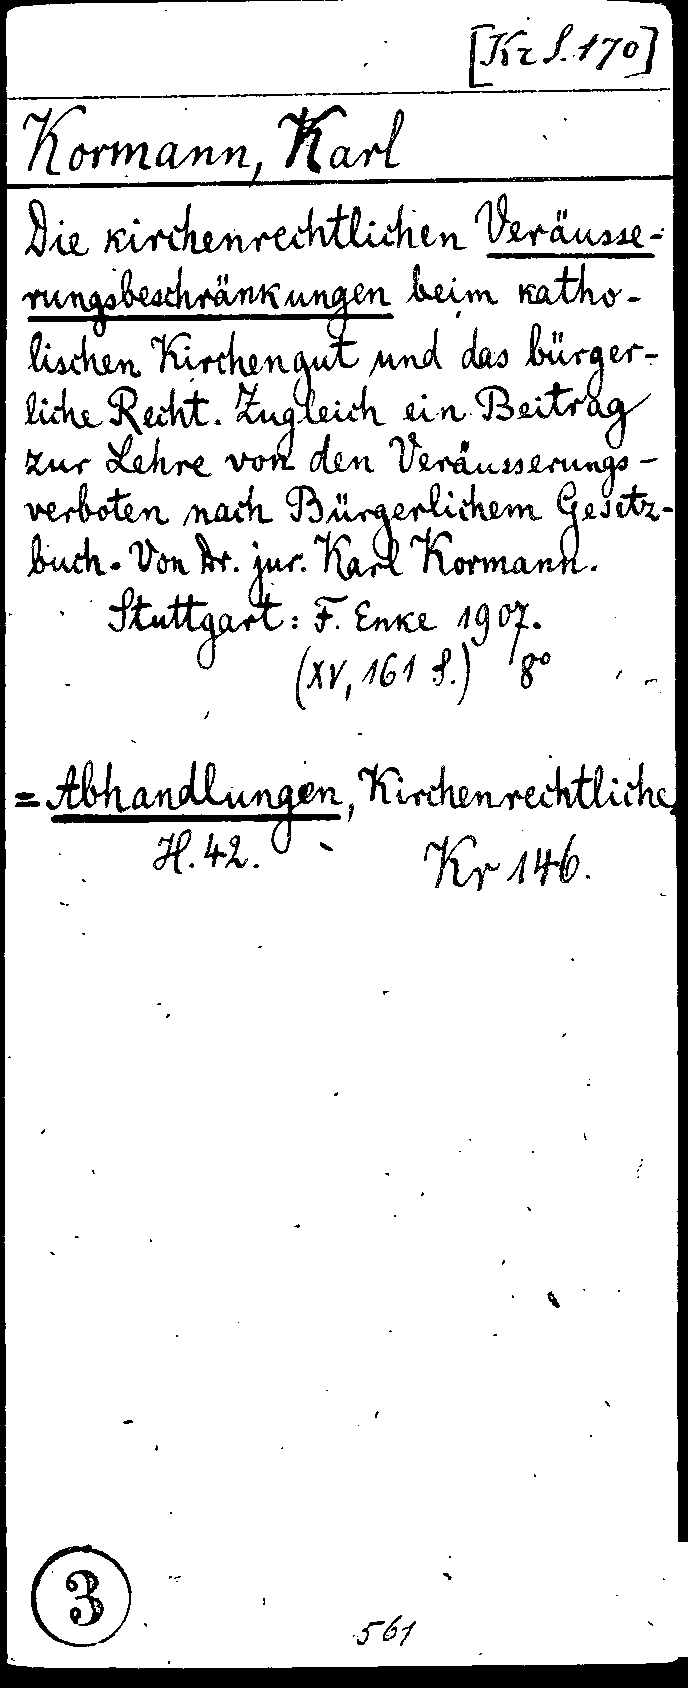 [Kr S. 170]
Kormann, Karl
Die kirchenrechtlichen Veräusse-
rungsbeschränkungen beim katho-
lischen Kirchengut und das bürger-
liche Recht. Zugleich ein Beitrag
zur Lehre von den Veräusserungs-
verboten nach Bürgerlichem Gesetz-
buch. Von Dr. jur. Karl Kormann.
Stuttgart: F. Enke 1907.
(XV, 161 S.) 8°
= Abhandlungen, Kirchenrechtliche,
H. 42. Kr 146.
3
561